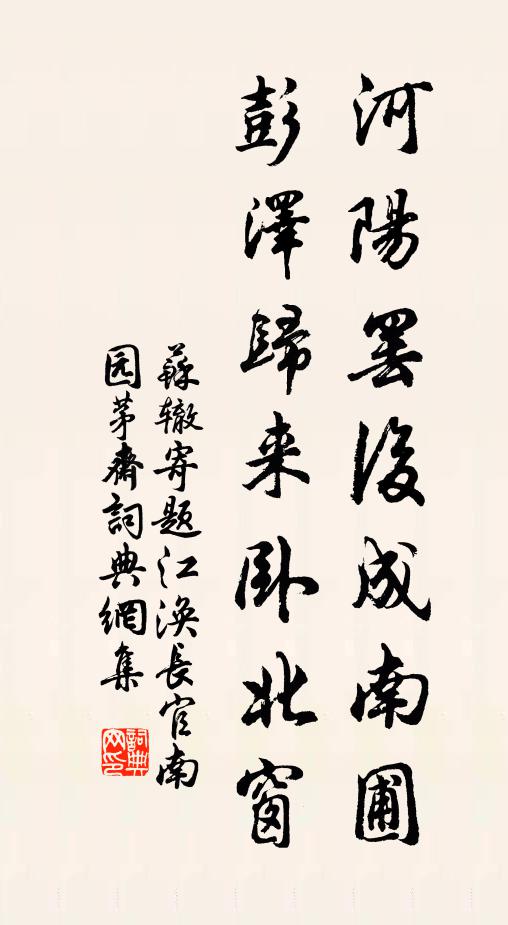 河陽罢後成南圃
彭澤歸来卧北窗
蘇辙寄题江涣長官南
园茅齋詞典網集
詞典网印